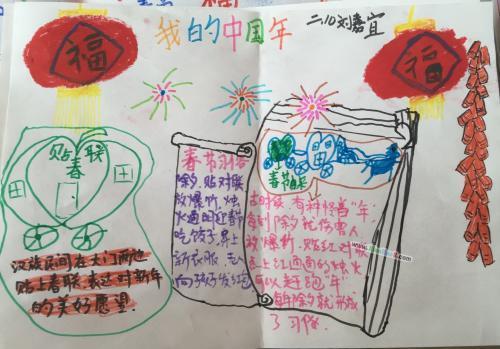 我的中国年
二.10刘嘉宜
福
福
贴春联
汉族民间在大门两边
贴上春联表达对新年
的美好愿望.
春节习俗
除夕.贴对联
放爆竹、烛
火通明迎新
吃饺子、穿上
新衣服、
向孩子发红包
春节的
古时候,有种怪兽"年"
每到除夕就伤害人
放爆竹,贴红对联
点上红通通的烛火
可以赶跑"年"
每年除夕就形成
了习俗.